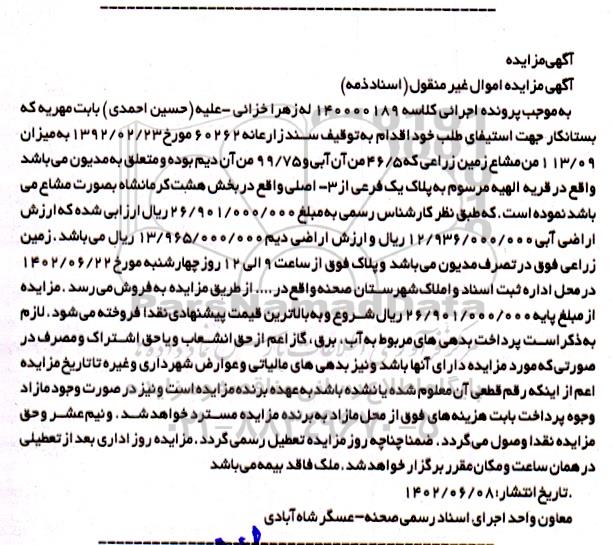 آگهی مزایده
آگهی مزایده اموال غیر منقول (اسناد ذمه)
به موجب پرونده اجرائی کلاسه ۱۴۰۰۰۰۱۸۹ له زهرا خزائی -علیه (حسین احمدی) بابت مهریه که
بستانکار جهت استیفای طلب خود اقدام به توقیف سند زارعانه ۶۰۲۶۲ مورخ ۱۳۹۲/۰۲/۲۳ به میزان
۱۱۳/۰۹ من مشاع زمین زراعی که ۴۶/۵ من آن آبی و ۹۹/۷۵ من آن دیم بوده و متعلق به مدیون می باشد
واقع در قریه الهیه مرسوم به پلاک یک فرعی از ۳- اصلی واقع در بخش هشت کرمانشاه بصورت مشاع می
باشد نموده است . که طبق نظر کارشناس رسمی به مبلغ ۲۶/۹۰۱/۰۰۰/۰۰۰ ریال ارزیابی شده که ارزش
اراضی آبی ۱۲/۹۳۶/۰۰۰/۰۰۰ ریال و ارزش اراضی دیم ۱۳/۹۶۵/۰۰۰/۰۰۰ ریال می باشد . زمین
زراعی فوق در تصرف مدیون می باشد و پلاک فوق از ساعت ۹ الی ۱۲ روز چهارشنبه مورخ ۱۴۰۲/۰۶/۲۲
در محل اداره ثبت اسناد و املاک شهرستان صحنه واقع در .... از طریق مزایده به فروش می رسد . مزایده
از مبلغ پایه ۲۶/۹۰۱/۰۰۰/۰۰۰ ریال شروع و به بالاترین قیمت پیشنهادی نقدا فروخته می شود . لازم
به ذکر است پرداخت بدهی های مربوط به آب ، برق ، گاز اعم از حق انشعاب و یا حق اشتراک و مصرف در
صورتی که مورد مزایده دارای آنها باشد و نیز بدهی های مالیاتی و عوارض شهرداری و غیره تا تاریخ مزایده
اعم از اینکه رقم قطعی آن معلوم شده یا نشده باشد به عهده برنده مزایده است و نیز در صورت وجود مازاد
وجوه پرداخت بابت هزینه های فوق از محل مازاد به برنده مزایده مسترد خواهد شد . و نیم عشر و حق
مزایده نقدا وصول می گردد . ضمنا چناچه روز مزایده تعطیل رسمی گردد . مزایده روز اداری بعد از تعطیلی
در همان ساعت و مکان مقرر برگزار خواهد شد . ملک فاقد بیمه می باشد
.تاریخ انتشار: ۱۴۰۲/۰۶/۰۸
معاون واحد اجرای اسناد رسمی صحنه-عسگر شاه آبادی
ParsNamadData
۰۲۱-۸۸۳۴۹۶۷۰-۵